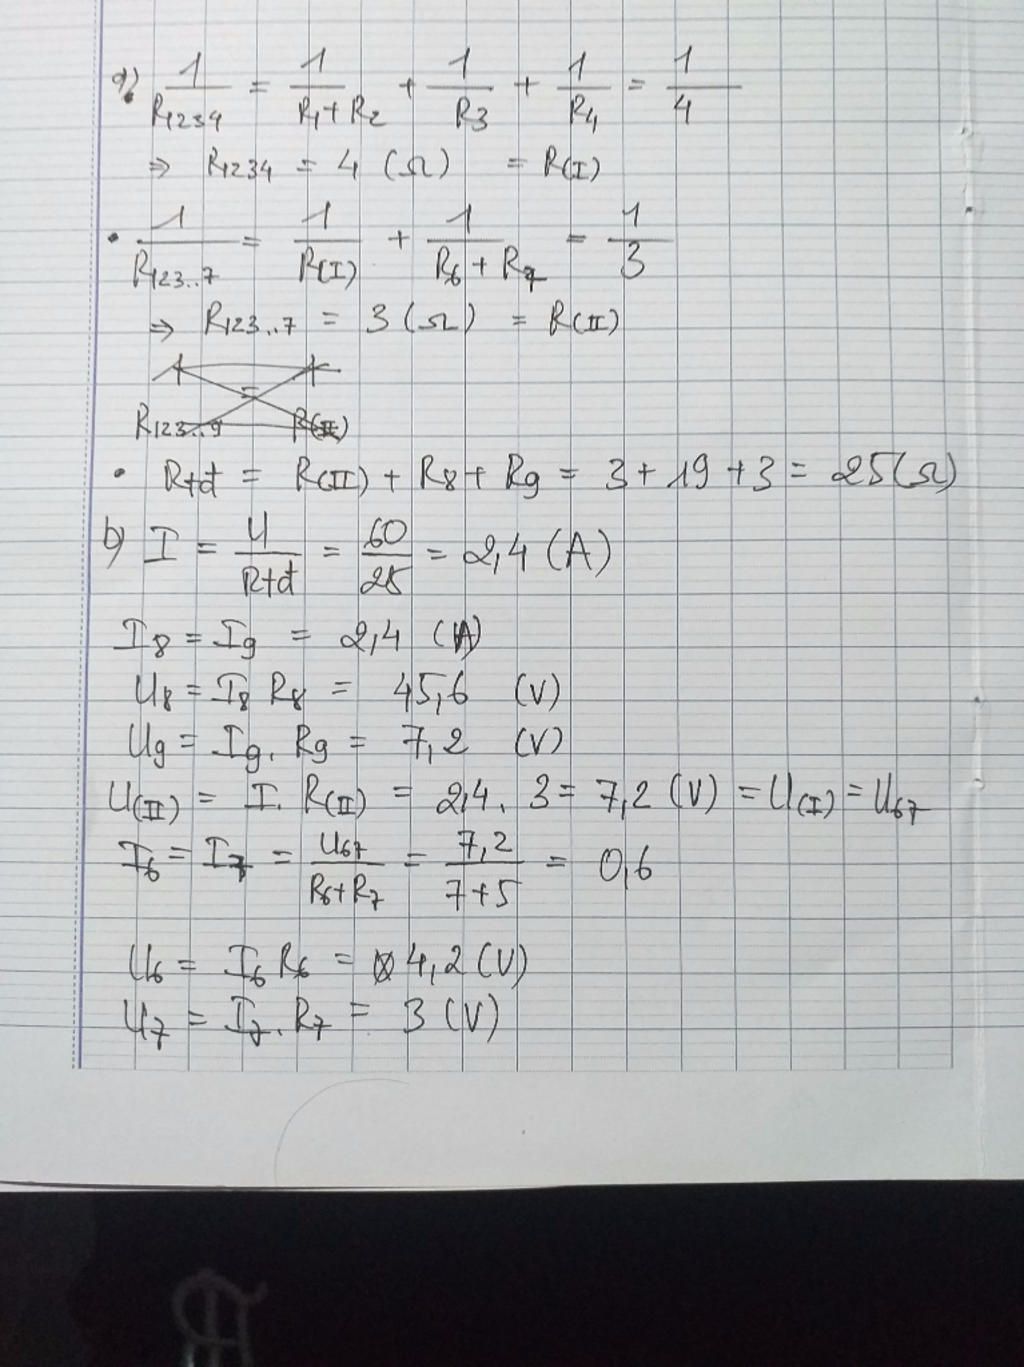 a) 1/R1234 = 1/(R1+R2) + 1/R3 + 1/R4 = 1/4
⇒ R1234 = 4 (Ω) = R(I)
• 1/R123..7 = 1/R(I) + 1/(R6+R7) = 1/3
⇒ R123..7 = 3 (Ω) = R(II)
1/R123..9 = 1/R(II)
• Rtđ = R(II) + R8 + R9 = 3 + 19 + 3 = 25 (Ω)
b) I = U/Rtđ = 60/25 = 2,4 (A)
I8 = I9 = 2,4 (A)
U8 = I8 R8 = 45,6 (V)
U9 = I9. R9 = 7,2 (V)
U(II) = I. R(II) = 2,4. 3 = 7,2 (V) = U(I) = U67
I6 = I7 = U67/(R6+R7) = 7,2/(7+5) = 0,6
U6 = I6 R6 = 4,2 (V)
U7 = I7. R7 = 3 (V)